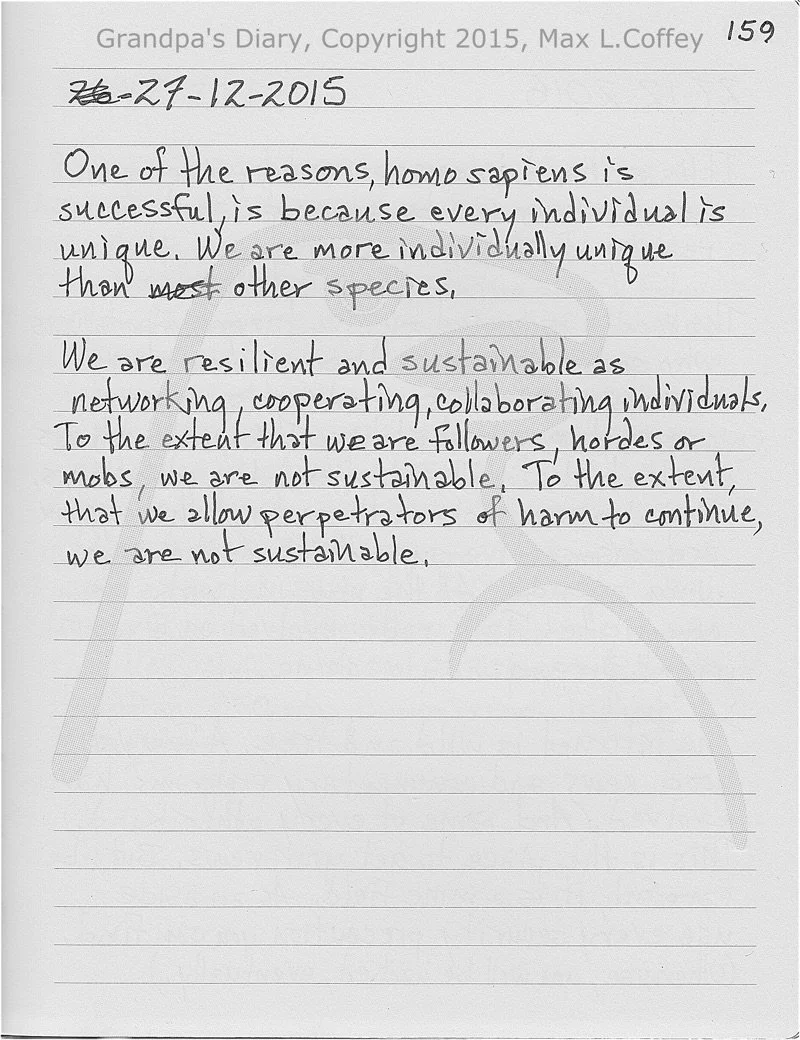 Grandpa's Diary, Copyright 2015, Max L.Coffey
159
27-12-2015
One of the reasons, homo sapiens is
successful, is because every individual is
unique. We are more individually unique
than most other species.
We are resilient and sustainable as
networking, cooperating, collaborating individuals.
To the extent that we are followers, hordes or
mobs, we are not sustainable. To the extent,
that we allow perpetrators of harm to continue,
we are not sustainable.